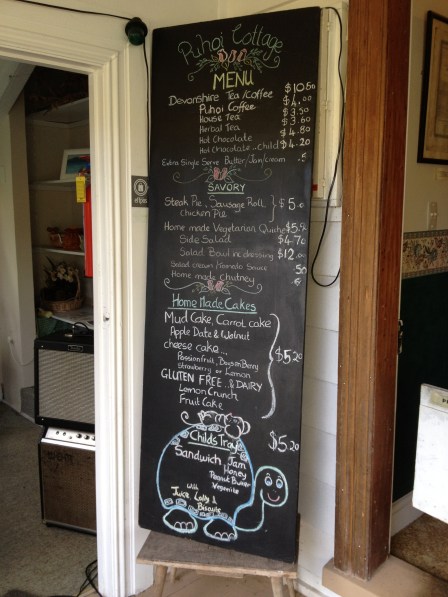 Puhoi Cottage
MENU
Devonshire Tea/Coffee $10.50
Puhoi Coffee $4.00
House Tea $3.50
Herbal Tea $3.60
Hot Chocolate $4.80
Hot Chocolate...child $4.20
Extra Single Serve Butter/Jam/Cream .5
SAVORY
Steak Pie, Sausage Roll $5.00
Chicken Pie
Home made Vegetarian Quiche $5.
Side Salad $4.70
Salad Bowl nc dressing $12.00
Salad cream/Tomato Sauce 50
Home made chutney
Home Made Cakes
Mud Cake, Carrot cake
Apple Date & Walnut
cheese cake...
Passionfruit, Boysn Berry
Strawberry or Lemon
$5.20
GLUTEN FREE ..& DAIRY
Lemon Crunch
Fruit Cake
Childs Tray $5.20
Sandwich Jam
Honey
Peanut Butter
Vegemite
with
Juice, Lolly &
Biscuits